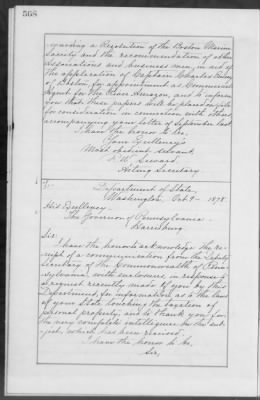 568
regarding a Resolution of the Boston Marine
Society and the recommendation of other
Associations and business men, in aid of
the application of Captain Charles
of Boston, for appointment as Commercial
Agent for the River Amazon, and to inform
you that these papers will be placed on file
for consideration in connection with others
accompanying your letter of September last.
I have the honor to be,
Your Excellency's
Most obedient servant,
F. W. Seward
Acting Secretary
Department of State,
Washington, Oct. 9 - 1878.
His Excellency
The Governor of Pennsylvania.
Harrisburg.
Sir:
I have the honor to acknowledge the re-
ceipt of a communication from the Deputy
Secretary of the Commonwealth of Penn-
sylvania, with enclosures, in response to
a request recently made to you by this
Department, for information as to the laws
of your State touching the taxation of
personal property, and to thank you for
the very complete intelligence on the sub-
ject, which has been received.
I have the honor to be,
Sir,